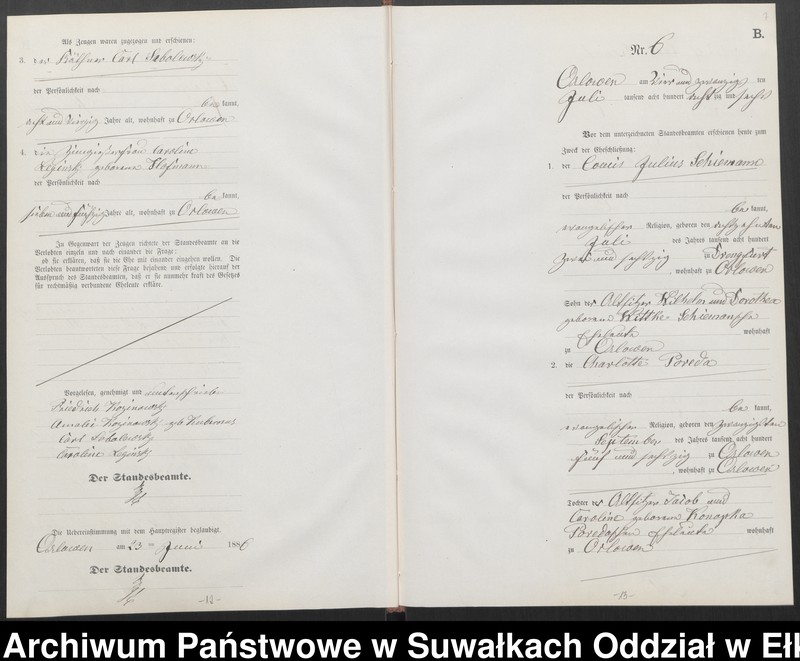 Als Zeugen waren zugezogen und erschienen:
3. der Käthner Carl Sobolewsky
der Persönlichkeit nach
be kannt,
acht und vierzig Jahre alt, wohnhaft zu Orlowen
4. die Caroline
Lezinsk geborene Hofmann
der Persönlichkeit nach
be kannt,
sieben und fünfzig Jahre alt, wohnhaft zu Orlowen
In Gegenwart der Zeugen richtete der Standesbeamte an die
Verlobten einzeln und nach einander die Frage:
ob sie erklären, daß sie die Ehe mit einander eingehen wollen. Die
Verlobten beantworteten diese Frage bejahend und erfolgte hierauf der
Ausspruch des Standesbeamten, daß er sie nunmehr kraft des Gesetzes
für rechtmäßig verbundene Eheleute erkläre.
Vorgelesen, genehmigt und unterschrieben
Friedrich
Amalie geb
Carl Sobolewsky
Caroline Lezinsk
Der Standesbeamte.
Die Uebereinstimmung mit dem Hauptregister beglaubigt.
Orlowen am 23 ten Juni 1886
Der Standesbeamte.
-12-
B.
Nr. 6
Orlowen am vier und zwanzig ten
Juli tausend acht hundert acht zig und sechs
Vor dem unterzeichneten Standesbeamten erschienen heute zum
Zweck der Eheschließung:
1. der Julius Schiemann
der Persönlichkeit nach
be kannt,
evangelischer Religion, geboren den achtzehnten
Juli des Jahres tausend acht hundert
zwei und sechzig zu
, wohnhaft zu Orlowen
Sohn der Altsitzer Wilhelm und Dorothea
geborene Wittke Schiemannschen
Eheleute wohnhaft
zu Orlowen
2. die Charlotte Poreda
der Persönlichkeit nach
be kannt,
evangelischer Religion, geboren den zwanzigsten
September des Jahres tausend acht hundert
fünf und sechzig zu Orlowen
, wohnhaft zu Orlowen
Tochter der Altsitzer Jacob und
Caroline geborene Konopka
Poredaschen Eheleute wohnhaft
zu Orlowen
-13-
Archiwum Państwowe w Suwałkach Oddział w Ełk